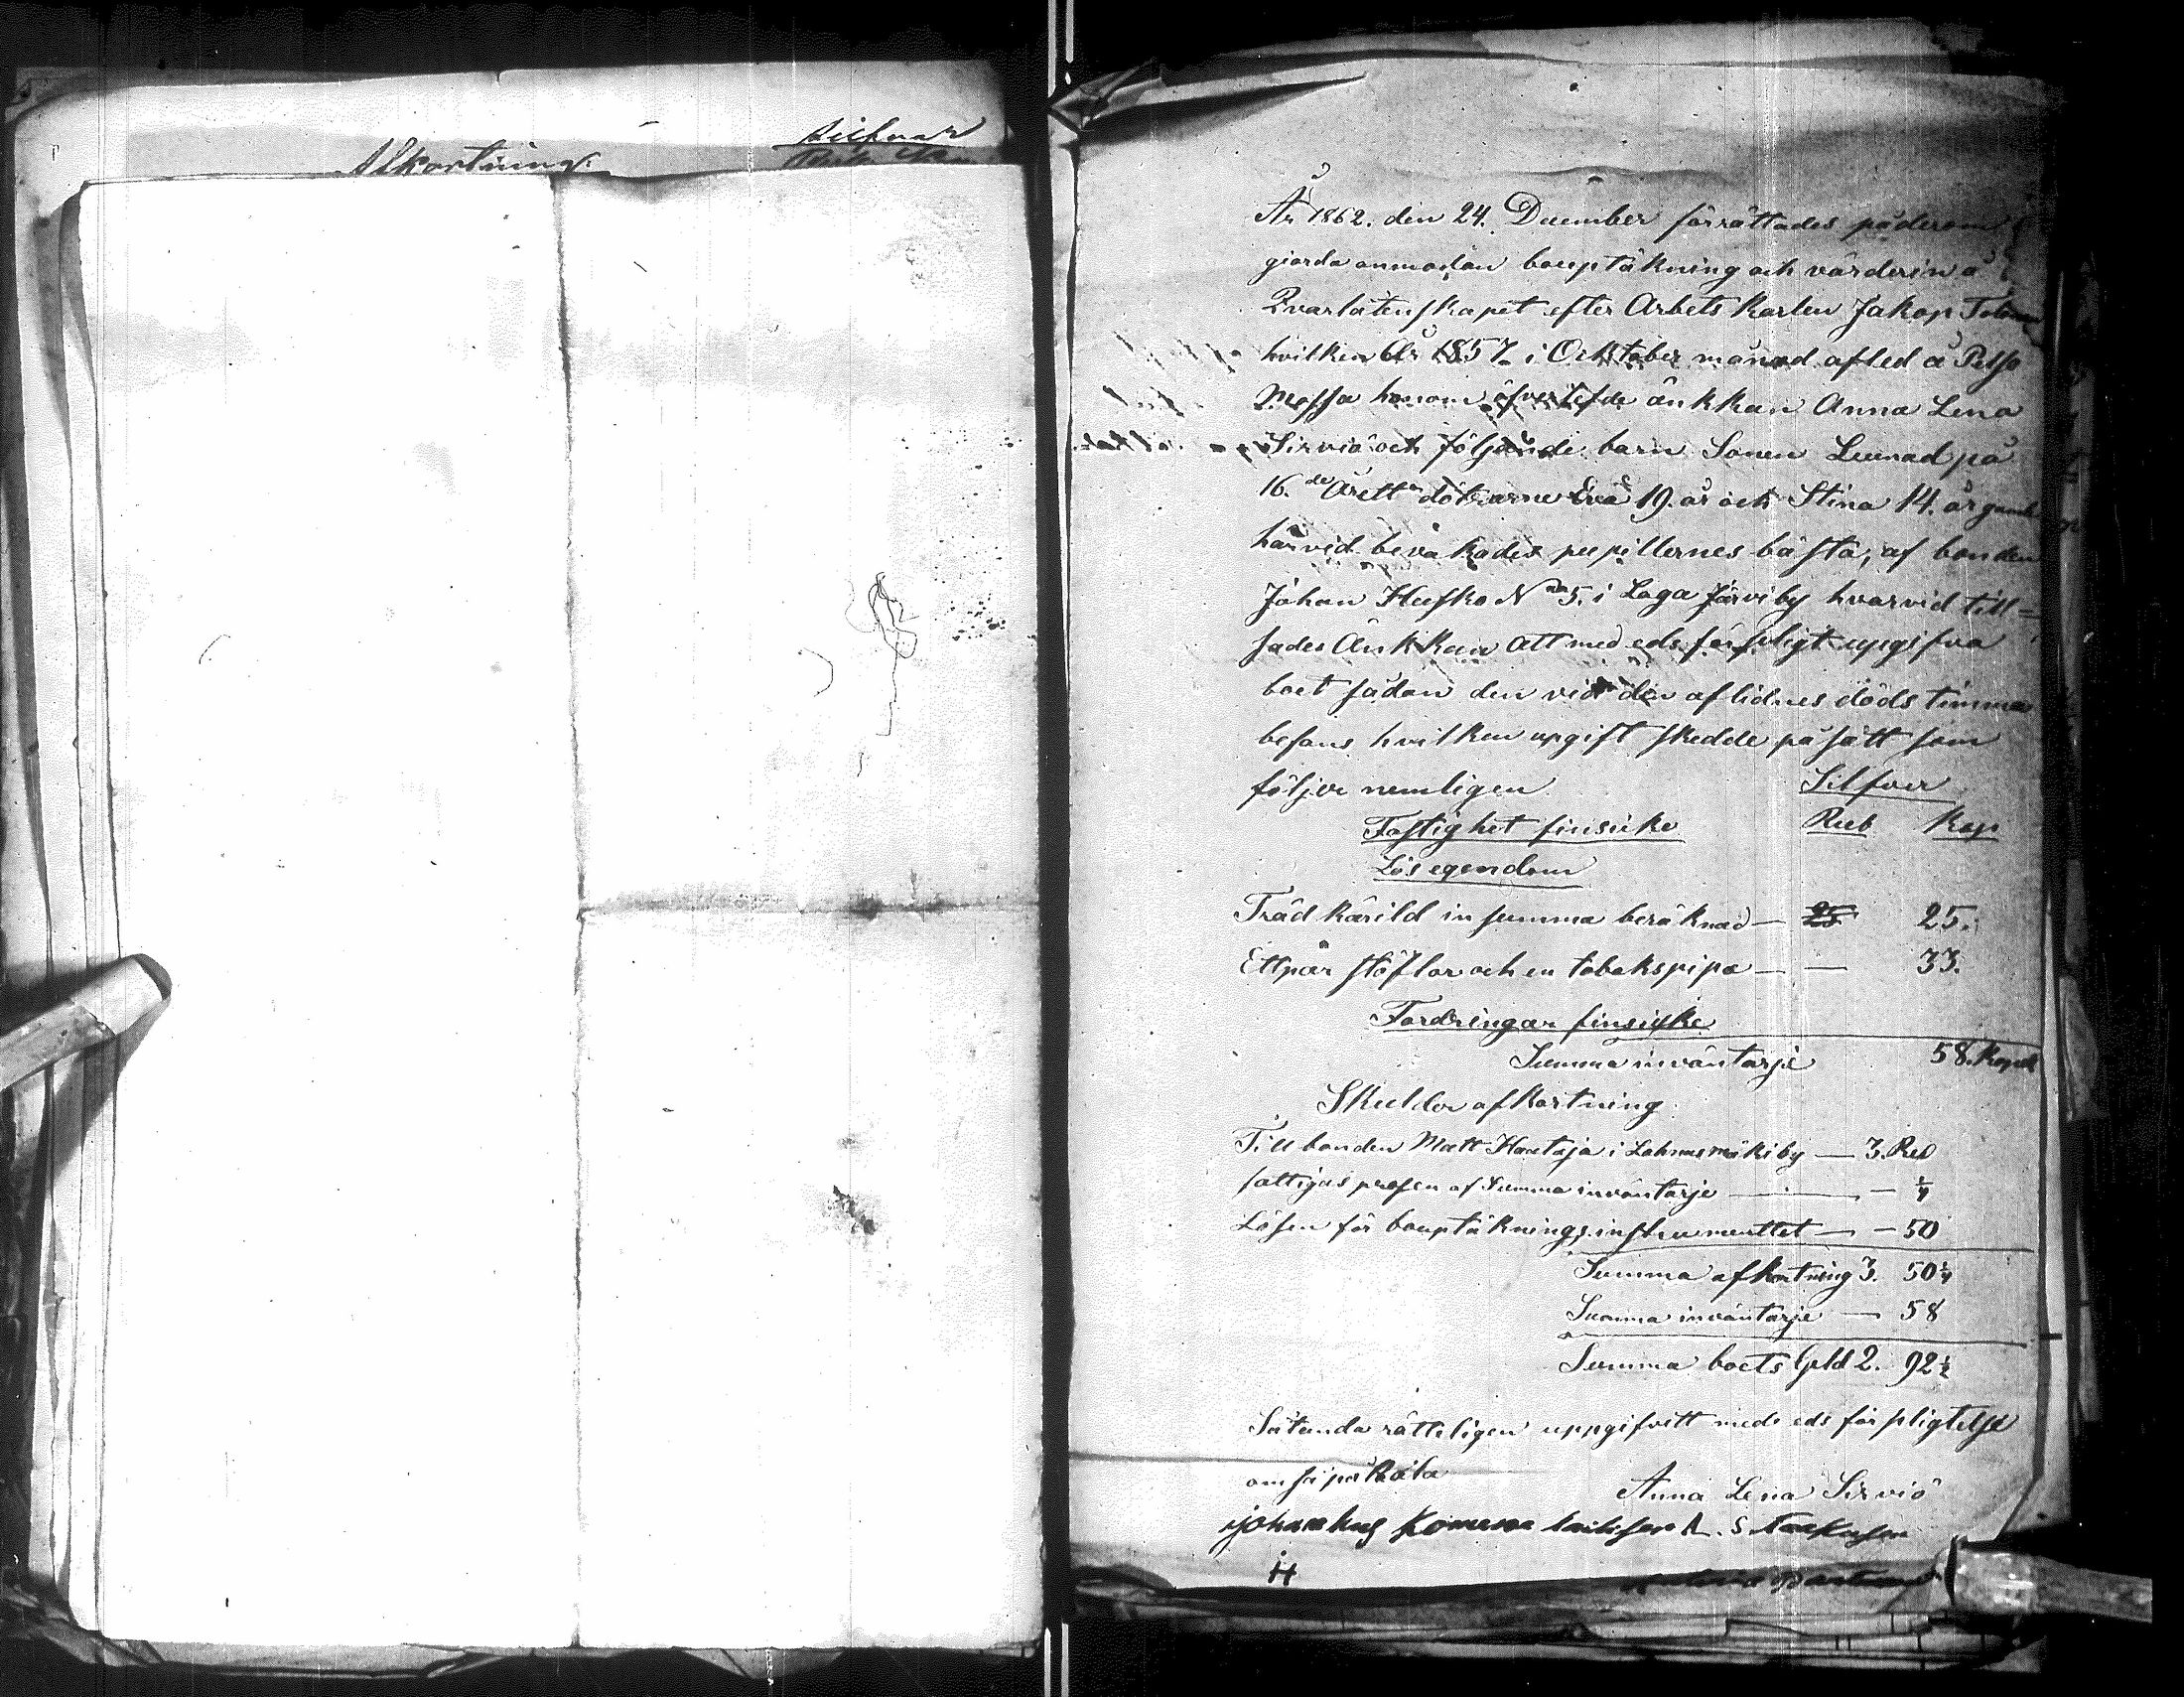 Silfver
Afkortning
År 1862. den 24. December förrättades på derom
giorda anmodan bouptäkning och värderin å
Qvarlåtenskapet efter Arbets Karlen Jakop
hvilken År 1857 i Ocktober månad afled å Pelso
Mossa honom öfverlefde änkkan Anna Lena
Sirviö och följande barn Sonen Leenad på
16.de Årett dötrarne Eva 19. år och Stina 14. år gamle
härvid bevakades pupillernes bästa, af bonden
Johan Husko N ro 5. i Laga järvi by hvarvid till=
sades Änkkan att med eds förpligt uppgifva
boet sådan den vid den aflidnes döds timma
befans hvilken upgift skedde på sätt som
följer nemligen Silfver
Fastighet finsicke Rub Kop
Lös egendom
Träd kärild in summa beräknad — 25 25.
Ett par stöflor och en tobakspipa — — 33.
Fordringar finsicke
Summa inväntarje 58. Kopek
Skulder afkortning
Till bonden Matt Hautaja i Lahnasmäki by — 3. Rub
fattigas prosen af Summa inväntarje — — 1/4
Lösen för bouptäknings instrumenttet — — 50
Summa afkortning 3. 50 1/4
Summa inväntarje — 58
Summa boets Gäld 2. 92 1/4
Sålunda rätteligen uppgifvitt med eds förpligtelse
om så påkala
Anna Lena Sirviö
H